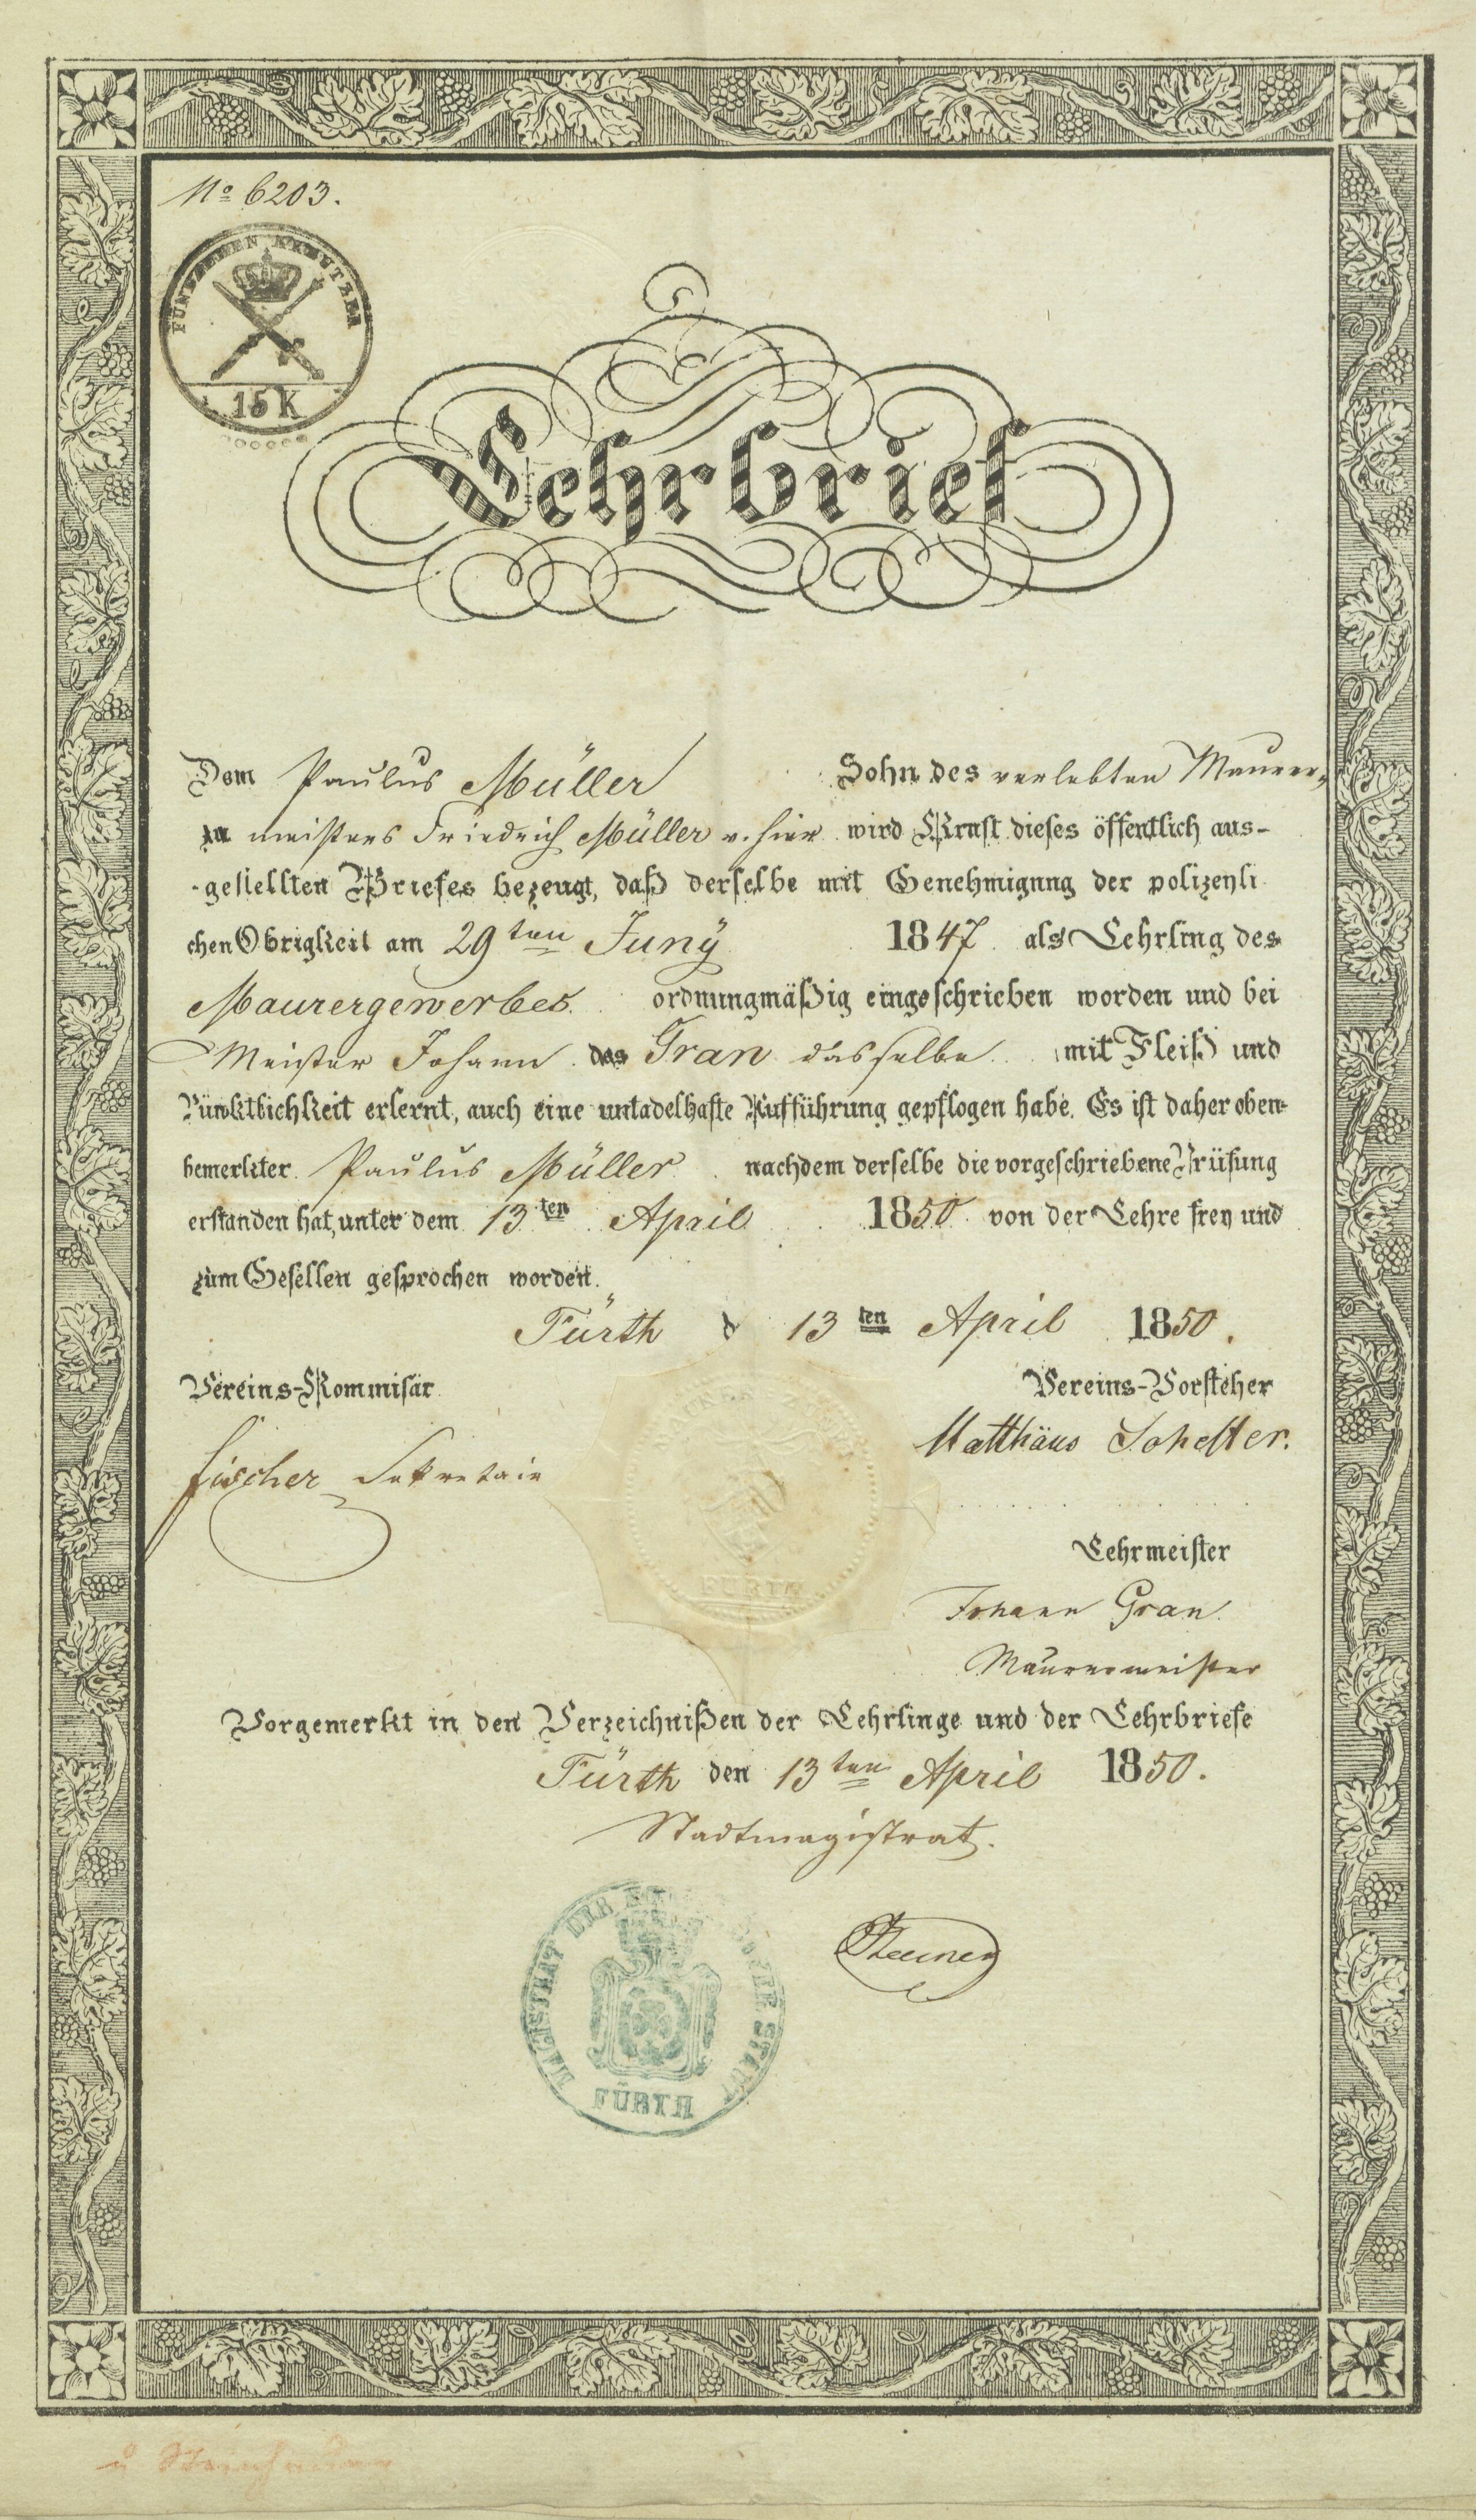 No 6203.
FÜNFZEHEN KREUTZER
15 K
Lehrbrief
Dem Paulus Müller Sohn des verlebten Maurer-
meisters Friedrich Müller v. hier wird Kraft dieses öffentlich aus-
gestellten Briefes bezeugt, daß derselbe mit Genehmigung der polizeyli
chen Obrigkeit am 29ten Juny 1847 als Lehrling des
Maurergewerbes ordnungmäßig eingeschrieben worden und bei
Meister Johann das Gran dasselbe mit Fleiß und
Pünktlichkeit erlernt, auch eine untadelhafte Aufführung gepflogen habe. Es ist daher oben-
bemerkter Paulus Müller nachdem derselbe die vorgeschriebene Prüfung
erstanden hat, unter dem 13ten April 1850 von der Lehre frey und
zum Gesellen gesprochen worden.
Fürth d 13ten April 1850.
Vereins-Kommisär Vereins-Vorsteher
Matthäus
Fischer Sekretair
FÜRTH
Lehrmeister
Johann Gran
Maurermeister
Vorgemerkt in den Verzeichnißen der Lehrlinge und der Lehrbriefe
Fürth den 13ten April 1850.
Stadtmagistrat.
MAGISTRAT DER STADT
FÜRTH